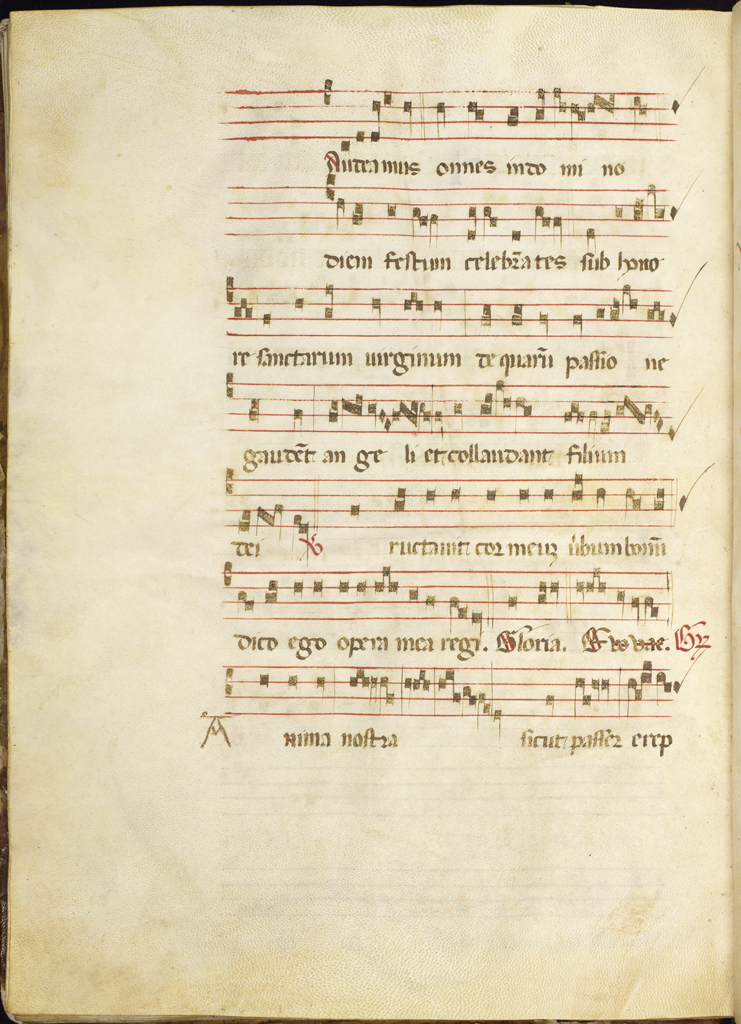 Audeamus omnes in do mi no
diem festum celebrates sub hono
re sanctarum uirginum de quarū passio ne
gaudēt an ge li et collaudant filium
dei ℣ ructauit cor meuȝ ūbum bonū
dico ego opera mea regi. Gloria. Euouae. Gȝ
A nima nostra sicut passer erep